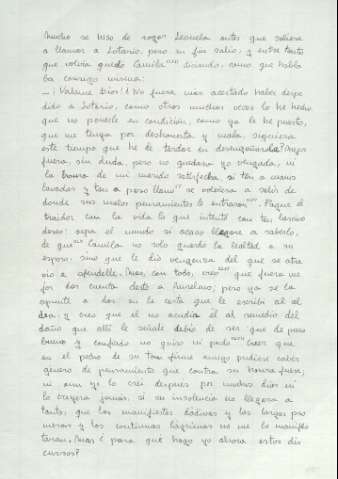 Mucho se hizo de rogar Leonela antes que saliese
a llamar a Lotario, pero en fin salió, y entre tanto
que volvía quedó Camila diciendo, como que habla
ba consigo misma:
— ¡Válame Dios! ¿No fuera más acertado haber despe
dido a Lotario, como otras muchas veces lo he hecho,
que no ponerle en condición, como ya le he puesto,
que me tenga por deshonesta y mala, siquiera
este tiempo que he de tardar en desengañarle? Mejor
fuera, sin duda, pero no quedara yo vengada, ni
la honra de mi marido satisfecha, si tan a manos
lavadas y tan a paso llano se volviera a salir de
donde sus malos pensamientos le entraron. Pague el
traidor con la vida lo que intentó con tan lascivo
deseo: sepa el mundo si acaso llegare a saberlo,
de que Camila no solo guardó la lealtad a su
esposo, sino que le dio venganza del que se atre
vió a ofendelle. Mas, con todo, creo que fuera me
jor dar cuenta desto a Anselmo; pero ya se la
apunté a dar en la carta que le escribí al al
dea, y creo que el no acudir él al remedio del
daño que allí le señalé debió de ser que de puro
bueno y confiado no quiso ni pudo creer que
en el pecho de su tan firme amigo pudiese caber
género de pensamiento que contra su honra fuese;
ni aun yo lo creí después por muchos días, ni
lo creyera jamás, si su insolencia no llegara a
tanto, que las manifiestas dádivas y las largas pro
mesas y las continuas lágrimas no me lo manifes
taran. Mas ¿para qué hago yo ahora estos dis
cursos?